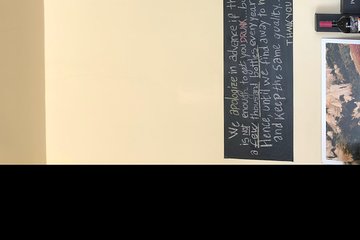 We apologize in advance if th
is not enough to get you DRUNK, bu
a few thousand bottles every year
Hence, until we find away to m
and keep the same quality.
THANK YOU